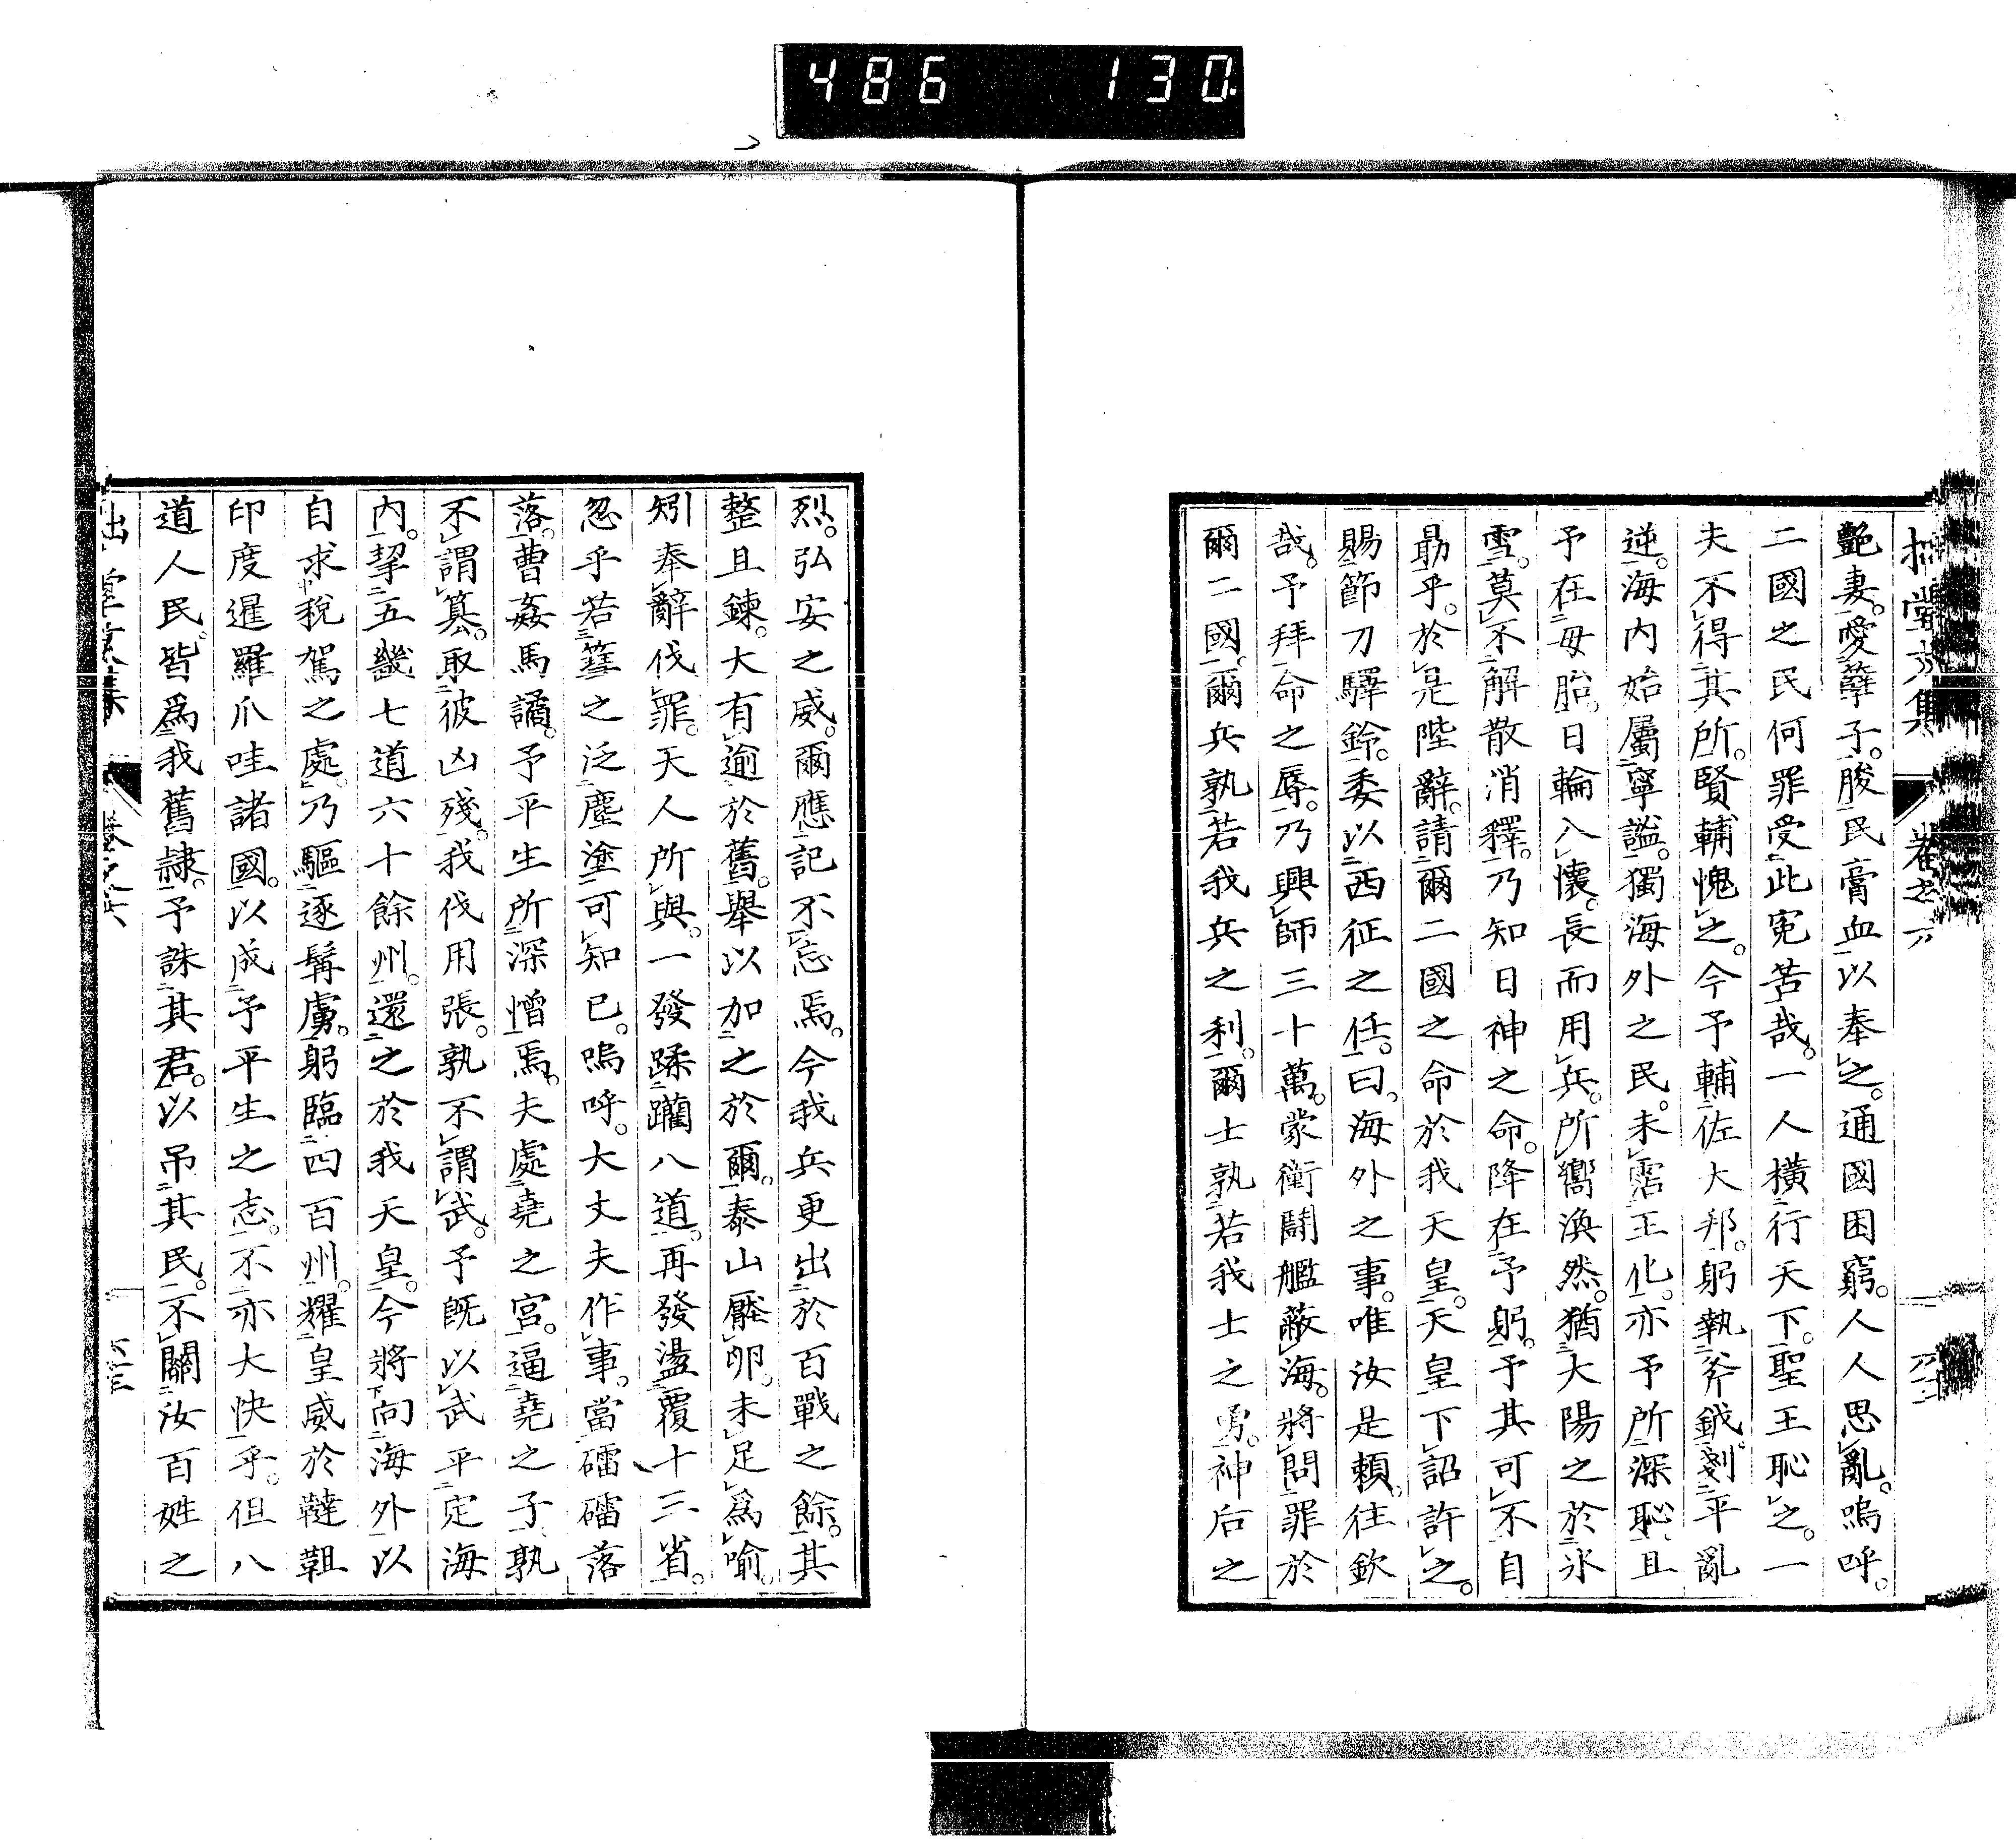 486 130
拙堂文集 卷之六
艷妻。愛孽子。朘民膏血以奉之。通國困窮。人人思亂。嗚呼。
二國之民何罪受此寃苦哉。一人橫行天下。聖王恥之。一
夫不得其所。賢輔愧之。今予輔佐大邦。躬執斧鉞。剗平亂
逆。海內始屬寧謐。獨海外之民。未霑王化。亦予所深恥。且
予在母胎。日輪入懷。長而用兵。所嚮渙然。猶大陽之於氷
雪。莫不解散消釋。乃知日神之命。降在予躬。予其可不自
勗乎。於是陛辭。請爾二國之命於我天皇。天皇下詔許之。
賜節刀驛鈴。委以西征之任。曰。海外之事。唯汝是賴。往欽
哉。予拜命之辱。乃興師三十萬。蒙衝鬭艦蔽海。將問罪於
爾二國。爾兵孰若我兵之利。爾士孰若我士之勇。神后之
烈。弘安之威。爾應記不忘焉。今我兵更出於百戰之餘。其
整且鍊。大有逾於舊。舉以加之於爾。泰山壓卵。未足爲喻。
矧奉辭伐罪。天人所與。一發蹂躪八道。再發盪覆十三省。
忽乎若篲之泛塵塗。可知已。嗚呼。大丈夫作事。當礌礌落
落。曹姦馬譎。予平生所深憎焉。夫處堯之宮。逼堯之子。孰
不謂篡。取彼凶殘。我伐用張。孰不謂武。予既以武平定海
內。挈五畿七道六十餘州。還之於我天皇。今將向海外以
自求稅駕之處。乃驅逐髯虜。躬臨四百州。耀皇威於韃靼
印度暹羅爪哇諸國。以成予平生之志。不亦大快乎。但八
道人民。皆爲我舊隷。予誅其君。以吊其民。不關汝百姓之
拙堂文集 卷之六